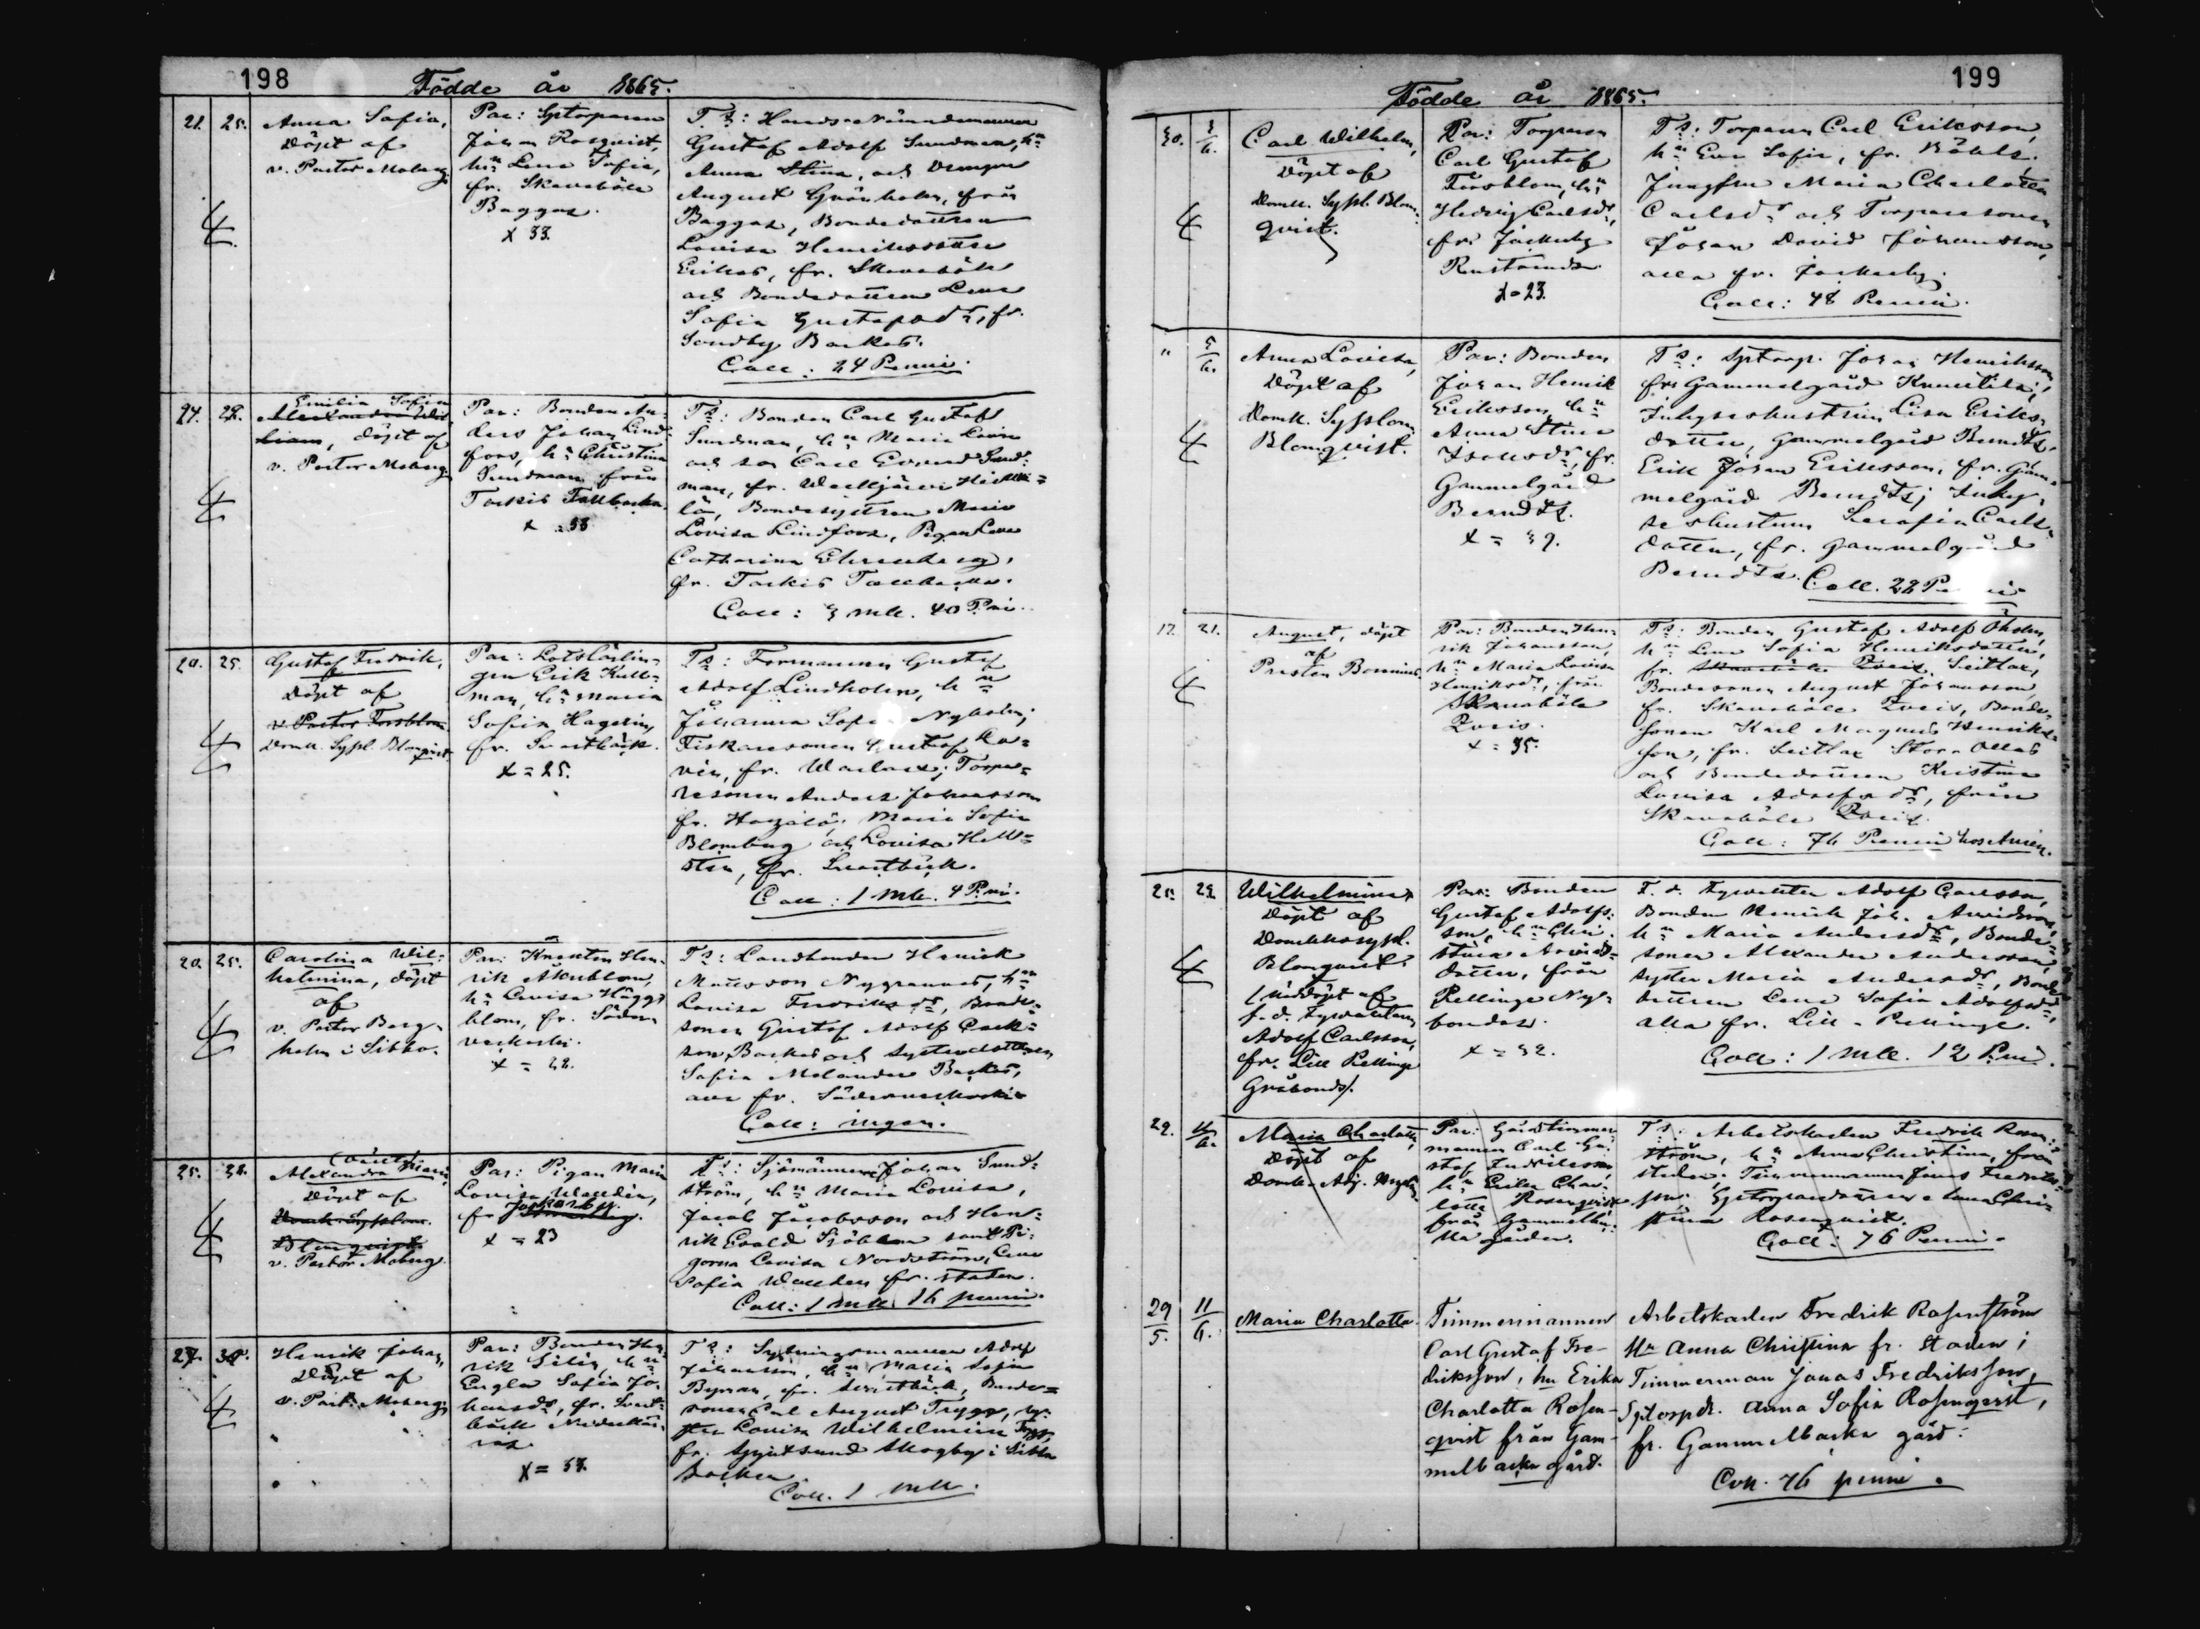 198
Födde år 1865.
21. 25. Anna Sofia,
Döpt af
v. Pastor Moberg.
Par: Sptorparen
Johan Rosqvist,
hn Lena Sofia,
fr. Skavaböle
Baggas.
x 33.
Ts:
Gustaf Adolf Sundman, hn
Anna Stina, och Drengen
August Grönholm, från
Baggas, Bondedottren
Lovisa
Erikas, fr. Skavaböle
och Bondedottren Lena
Sofia Gustafsdr, fr.
Sondby Backas.
Coll: 24 Penni.
24. 28. Emilia Sofia
döpt af
v. Pastor Moberg
Par: Bonden An-
ders Johan Lind-
fors, hn Christina
Sundman från
Tarkis Tallbacka.
x = 38
Ts: Bonden Carl Gustaf
Sundman, hn Maria Lovisa
och son Carl Edvard Sund-
man, fr.
Maria
Lovisa Lindfors, Pigan Lena
Catharina Ehrenberg,
fr. Tarkis Tallbacka.
Coll: 3 mk. 40 Pni.
20. 25. Gustaf Fredrik,
Döpt af
v. Pastor Forsblom
Domk. Syssl. Blomqvist.
Par: Lotslärlin-
gen Erik Kull-
man, hn Maria
Sofia Hagelin,
fr. Svartbäck.
x = 25.
Ts: Formannen Gustaf
Adolf Lindholm, hn
Johanna Sofia Nyholm;
Fiskaresonen Gustaf Ko-
vin, fr. Torpa-
resonen Anders Johansson
fr. Maria Sofia
Blomberg och Lovisa Hell-
sten, fr. Svartbäck.
Coll: 1 mk. 4 Pni.
20. 25. Carolina Wil-
helmina, döpt
af
v. Pastor Berg-
holm i Sibbo.
Par: Knekten Hen-
rik Åkerblom,
hn Lovisa Hägg-
blom, fr. Söder-
veckoski.
x = 22.
Ts: Landbonden Henrick
Mattsson Nygrannas, hn
Lovisa Fredriksdr, Bonde-
sonen Gustaf Adolf Carls-
son Backas och Systerdottren
Sofia Melander Backas,
alla fr. Söderveckoski.
Coll: ingen.
25. Lovisa
Alexandra Maria,
Döpt af
Domk. Sysslom.
Blomqvist
v. Pastor Moberg.
Par: Pigan Maria
Lovisa Wallden,
fr Jackarby.
x = 23
Ts: Sjömannen Johan Sund-
ström, hn Maria Lovisa,
Jacob Jacobsson och Hen-
rik Evald Sjöblom samt Pi-
gorna Lovisa Nordström, Lena
Sofia Wallden fr. staden.
Coll: 1 mk. 16 penni.
27. 30. Henrik Johan,
Döpt af
v. Past: Moberg.
Par: Bonden Hen-
rik Silén, hn
Engla Sofia Jo-
hansdr, fr. Svart-
bäck
x = 37.
Ts: Sytningsmannen Adolf
Johansson, hn Maria Sofia
Byman, fr. Svartbäck, Bonde-
sonen Carl August Trygg, sy-
ster Lovisa Wilhelmina Trygg,
fr. Spjutsund Skogby i Sibbo
Socken.
Coll. 1 mk.
199
Födde år 1865.
30. 3/6. Carl Wilhelm,
Döpt af
Domk. Syssl. Blom-
qvist.
Par: Torparen
Carl Gustaf
Forsblom, hn
Hedvig Carlsdr,
fr. Jackarby
x = 23.
Ts: Torparen Carl Eriksson,
hn Eva Sofia, fr.
Jungfru Maria Charlotta
Carlsdr och Torparesonen
Johan David Johansson,
alla fr. Jackarby.
Coll: 48 Penni.
" 5/6. Anna Lovisa,
Döpt af
Domk. Sysslom.
Blomqvist.
Par: Bonden
Johan Henrik
Eriksson, hn
Anna Stina
Isaksdr, fr.
Gammelgård
Berndts.
x = 39.
Ts: Sptorp. Johan Henriksson,
fr. Gammelgård Knuutila;
Inhyseshustrun Lisa Eriks-
dotter, Gammelgård Berndts,
Erik Johan Eriksson, fr. Gam-
melgård Berndts; Inhy-
seshustrun Serafia Carls-
dotter, fr. Gammelgård
Berndts. Coll. 22 Penni.
17. 21. August, döpt
af
Presten Bonnius.
Par: Bonden Hen-
rik Johansson,
hn Maria Lovisa
Henriksdr, från
Skavaböle
x = 35.
Ts: Bonden Gustaf Adolf Öholm,
hn Lena Sofia Henriksdotter,
fr. Seitlax,
Bondesonen August Johansson,
fr. Skavaböle Bonde-
sonen Karl Magnus Henriks-
son, fr. Seitlax Stor-Ollas
och Bondedottren Kristina
Lovisa Adolfsdr, från
Skavaböle
Coll: 76 Penni
25. 29. Wilhelmina,
Döpt af
Domkkosyssl.
Blomqvist.
(Nöddöpt af
f.d. Tygvaktaren
Adolf Carlsson,
fr. Lill Pellinge
Gråbonds).
Par: Bonden
Gustaf Adolfs-
son, hn Chri-
stina Arvids-
dotter, från
Pellinge Ny-
bondas.
x = 32.
F. d. Tygvakten Adolf Carlsson,
Bonden Henrik Joh. Arvidsson,
hn Maria Andersdr, Bonde-
sonen Alexander Andersson,
syster Maria Andersdr, Bonde-
dottren Lena Sofia Adolfsdr,
alla fr. Lill-Pellinge.
Coll: 1 mk. 12 Pni.
29. 11/6. Maria Charlotta,
Döpt af
Domk. Adj.
Par: Gårdtimmer-
mannen Carl Gu-
staf Fredriksson,
hn Erika Char-
lotta Rosenqvist
från Gammelba-
cka gården.
Ts: Arbetskarlen Fredrik Rosen-
ström, hn Anna Christina, från
staden. Timmermannen Jonas Fredriks-
son; Sptorparedottren Anna Chri-
stina Rosenqvist.
Coll: 76 Penni.
29/5. 11/6. Maria Charlotta.
Timmermannen
Carl Gustaf Fre-
driksson, hn Erika
Charlotta Rosen-
qvist från Gam-
melbacka gård.
Arbetskarlen Fredrik Rosenström
Hn Anna Christina fr. Staden;
Timmerman Jonas Fredriksson,
Sptorpdr. Anna Sofia Rosenqvist,
fr. Gammelbacka gård.
Coll. 76 penni.